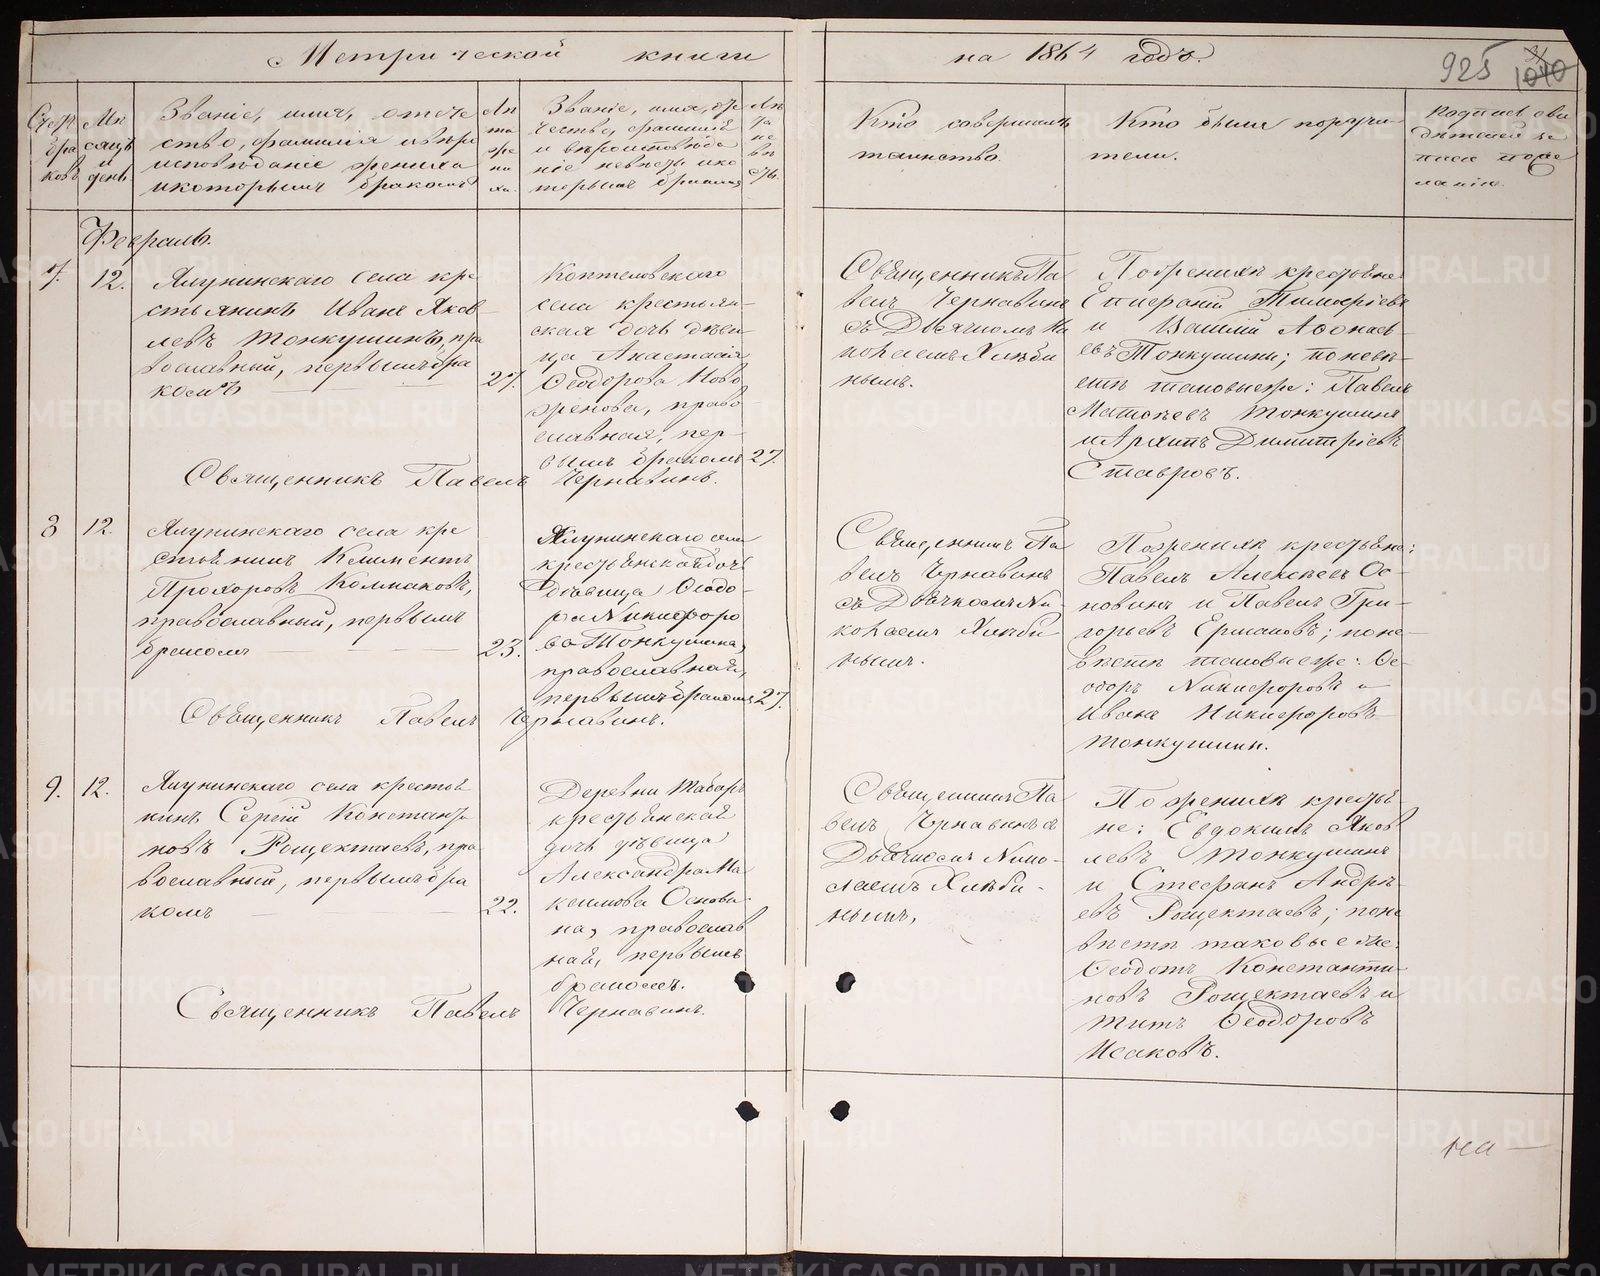 Метрической книги
на 1864 годъ.
925
1040
Счетъ бра ковъ
Мѣ сяцъ и день
Званіе, имя, отече
ство, фамилія и вѣро
исповѣданіе жениха
и которымъ бракомъ
Лѣ та же ни ха.
Званіе, имя, оте
чество, фамилія
и вѣроисповѣда
ніе невѣсты и ко
торымъ бракомъ
Лѣ та не вѣ сты.
Кто совершалъ
таинство
Кто были поручи
тели.
Подписи сви
дѣтелей за
писи по же
ланію.
Февраль.
7.
12.
Ялунинскаго села кре
стьянинъ Иванъ Яков
левъ Тонкушинъ, пра
вославный, первымъ бра
комъ
27.
Коптеловскаго
села крестьян-
ская дочь дѣви
ца Анастасія
Ѳеодорова Ново
женова, право
славная, пер-
вымъ бракомъ
27.
Священникъ Павелъ Чернавинъ.
Священникъ Па
велъ Чернавинъ
съ Дьячкомъ Ни
колаемъ Хлѣби
нымъ.
По женихѣ крестьяне
Епифаній Тимофеевъ
и Василій Афонась
евъ Тонкушины; по невѣ-
стѣ таковые же: Павелъ
Матвѣевъ Тонкушинъ
и Архипъ Димитріевъ
Ставровъ.
8
12.
Ялунинскаго села кре
стьянинъ Климентъ
Прохоровъ Колмаковъ,
православный, первымъ
бракомъ
23.
Ялунинскаго села
крестьянская дочь
Дѣвица Ѳеодо-
ра Никифоро
ва Тонкушина,
православная,
первымъ бракомъ
27.
Священникъ Павелъ Чернавинъ.
Священникъ Па
велъ Чернавинъ
съ Дьячкомъ Ни-
колаемъ Хлѣби
нымъ.
По женихѣ крестьяне:
Павелъ Алексѣевъ Ос-
новинъ и Павелъ Гри-
горьевъ Ермаковъ; по не-
вѣстѣ таковые же: Ѳе-
одоръ Никифоровъ и
Иванъ Никифоровъ
Тонкушины.
9.
12.
Ялунинскаго села крестья
нинъ Сергій Констант
новъ Рощектаевъ, пра
вославный, первымъ бра
комъ
22.
Деревни Таборъ
крестьянская
дочь дѣвица
Александра Ма
ксимова Основи
на, православ
ная, первымъ
бракомъ.
Священникъ Павелъ Чернавинъ.
Священникъ Па
велъ Чернавинъ съ
Дьячкомъ Нико-
лаемъ Хлѣби-
нымъ,
По женихѣ крестья-
не: Евдокимъ Яков
левъ Тонкушинъ
и Стефанъ Андрѣ-
евъ Рощектаевъ; по не
вѣстѣ таковые же:
Ѳеодотъ Константи-
новъ Рощектаевъ и
Титъ Ѳеодоровъ
Исаковъ.
на-